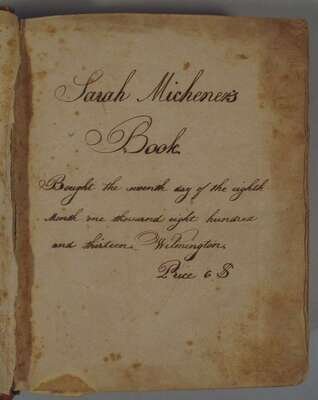 Sarah Micheners
Book
Bought the seventh day of the eighth
Month one thousand eight hundred
and thirteen. Wilmington.
Price 6 $